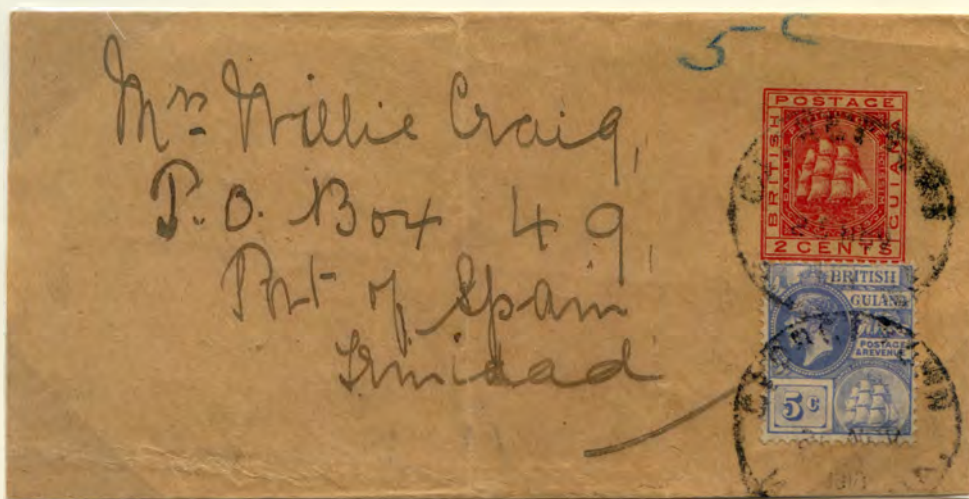 5 c
Mrs Willie Craig,
P.O. Box 49,
Port of Spain
Trinidad
POSTAGE
BRITISH
GUIANA
2 CENTS
BRITISH
GUIANA
POSTAGE
& REVENUE
5 C